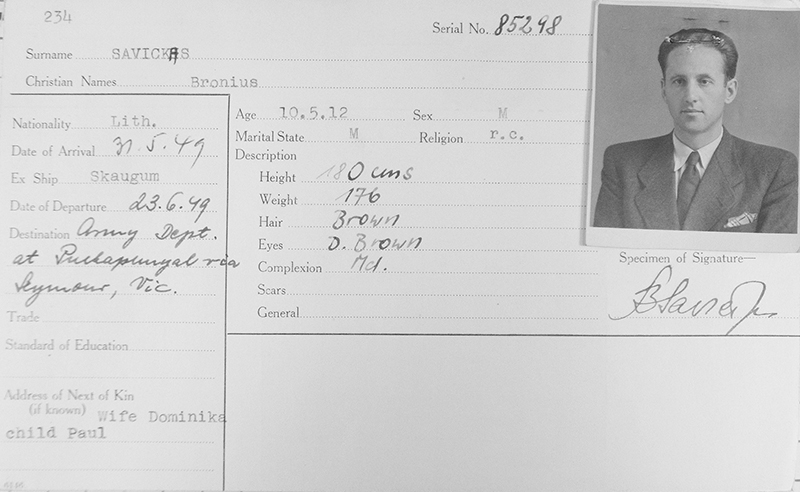 234
Serial No. 85298
Surname SAVICKAS
Christian Names Bronius
Nationality Lith.
Date of Arrival 31.5.49
Ex Ship Skaugum
Date of Departure 23.6.49
Destination Army Dept.
at Puckapunyal via
Seymour, Vic.
Trade
Standard of Education
Address of Next of Kin
(if known) Wife Dominika
child Paul
Age 10.5.12 Sex M
Marital State M Religion r.c.
Description
Height 180 cms
Weight 176
Hair Brown
Eyes D. Brown
Complexion Md.
Scars
General
Specimen of Signature—